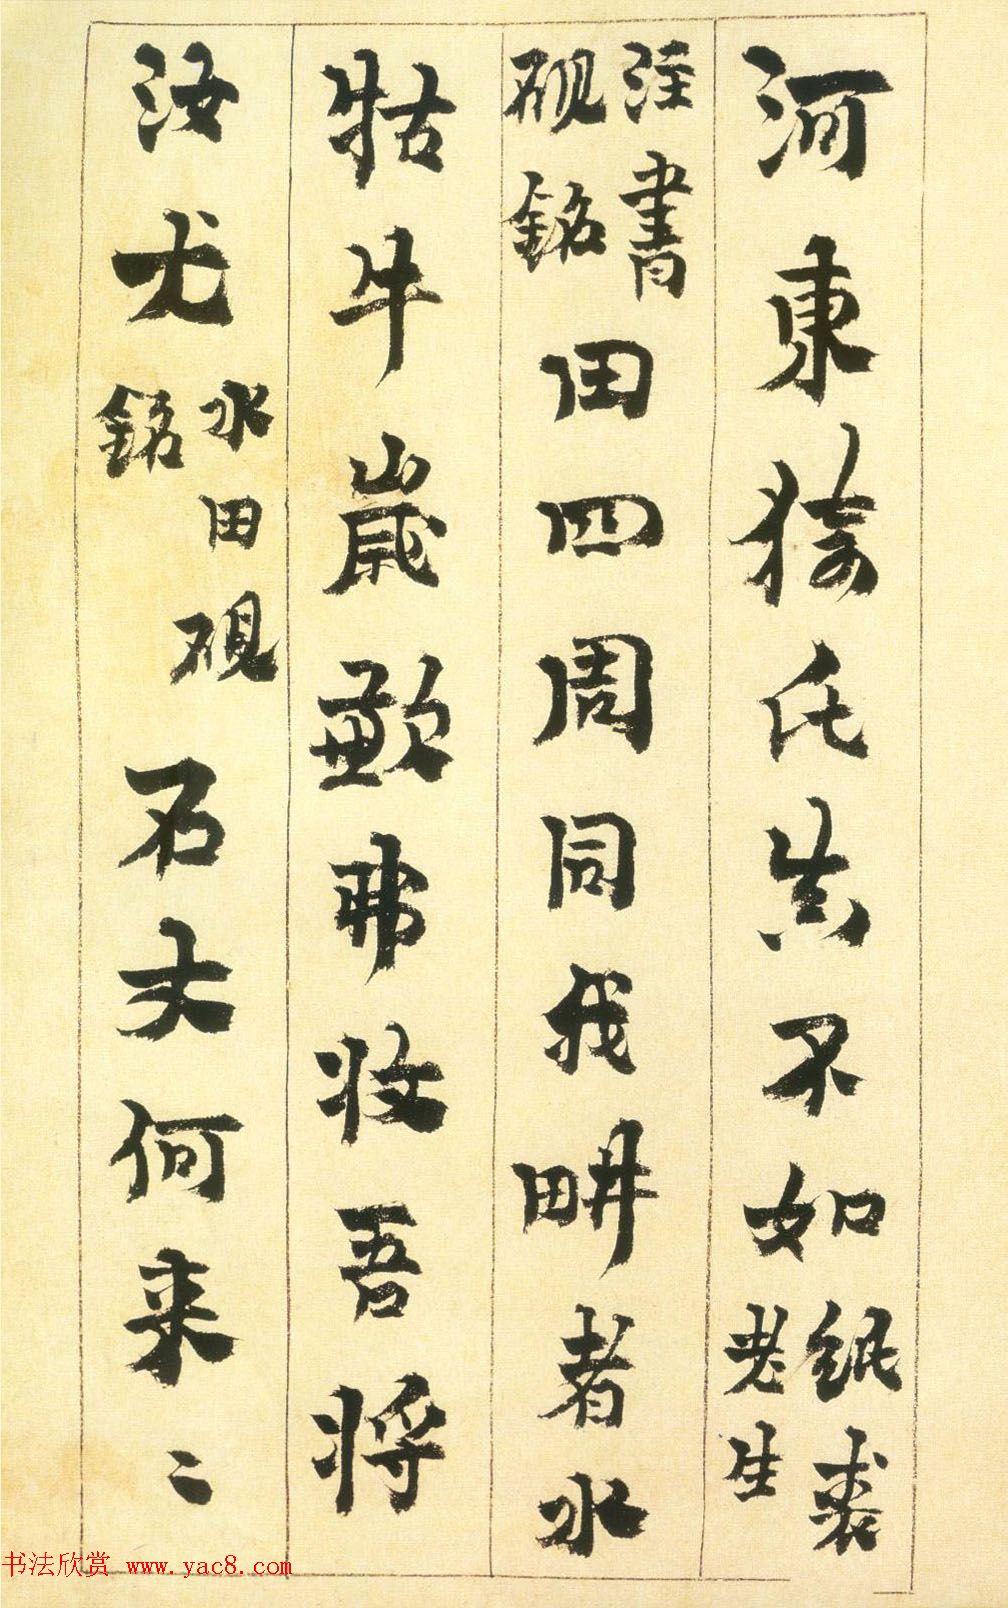 河東猗氏不如紙裘老生
注書硯銘田四周同我畊者水
牯牛歲歉弗收吾將
汝尤水田硯銘石丈何来〻
书法欣赏 www.yac8.com